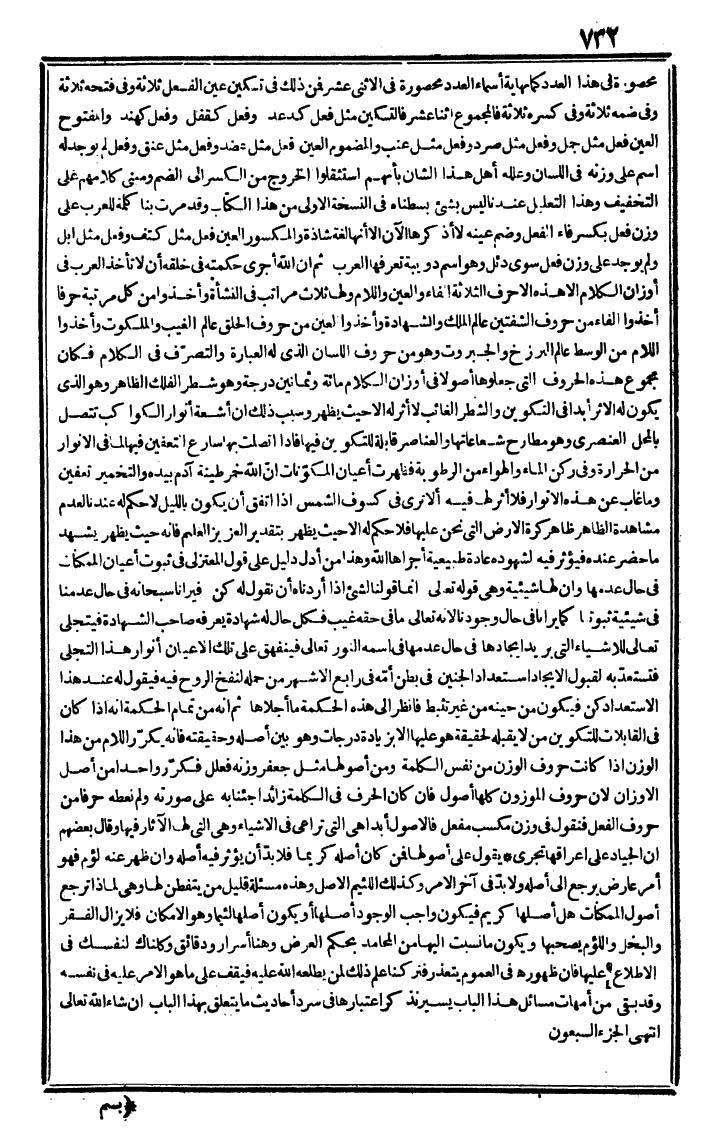 ٧٣٢
محصورة في هذا العدد كما نهاية أسماء العدد محصورة في الاثني عشر فمن ذلك في تسكين عين الفعل ثلاثة وفي فتحه ثلاثة
وفي ضمه ثلاثة وفي كسره ثلاثة فالمجموع اثنا عشر فالتسكين مثل فعل كدعد وفعل كقفل وفعل كهند والمفتوح
العين فعل مثل جمل وفعل مثل صرد وفعل مثل عنب والمضموم العين فعل مثل عضد وفعل مثل عنق وفعل لم يوجد له
اسم على وزنه في اللسان وعلله أهل هذا الشان بأنهم استثقلوا الخروج من الكسر الى الضم ومبنى كلامهم على
التخفيف وهذا التعليل عندنا ليس بشئ بسطناه في النسخة الاولى من هذا الكتاب وقد مرت بنا كلمة للعرب على
وزن فعل بكسر فاء الفعل وضم عينه لا أذكرها الآن الا أنها لغة شاذة والمكسور العين فعل مثل كتف وفعل مثل ابل
ولم يوجد على وزن فعل سوى دئل وهو اسم دويبة تعرفها العرب ثم ان الله أجرى حكمته في خلقه أن لا تأخذ العرب في
أوزان الكلام الا هذه الاحرف الثلاثة الفاء والعين واللام ولها ثلاث مراتب في النشأة وأخذوا من كل مرتبة حرفا
أخذوا الفاء من حروف الشفتين عالم الملك والشهادة وأخذوا العين من حروف الحلق عالم الغيب والملكوت وأخذوا
اللام من الوسط عالم البرزخ والجبروت وهو من حروف اللسان الذي له العبارة والتصرف في الكلام فكان
مجموع هذه الحروف التي جعلوها أصولا في أوزان الكلام مائة وثمانين درجة وهو شطر الفلك الظاهر وهو الذي
يكون له الاثر أبدا في التكوين والشطر الغائب لا أثر له الا حيث يظهر وسبب ذلك ان أشعة أنوار الكواكب تتصل
بالمحل العنصرى وهو مطارح شعاعاتها والعناصر قابلة للتكوين فيها فاذا اتصلت بها سارع التعفين فيها لما في الانوار
من الحرارة وفي ركن الماء والهواء من الرطوبة فظهرت أعيان المكونات انّ الله خمر طينة آدم بيده والتخمير تعفين
وما غاب عن هذه الانوار فلا أثر لها فيه ألا ترى في كسوف الشمس اذا اتفق أن يكون بالليل لا حكم له عندنا لعدم
مشاهدة الظاهر ظاهر كرة الارض التي نحن عليها فلا حكم له الا حيث يظهر بتقدير العزيز العليم فانه حيث يظهر يشهد
ما حضر عنده فيؤثر فيه لشهوده عادة طبيعية أجراها الله وهذا من أدل دليل على قول المعتزلى في ثبوت أعيان الممكنات
في حال عدمها وان لها شيئية وهي قوله تعالى انما قولنا لشئ اذا أردناه أن نقول له كن فيرانا سبحانه في حال عدمنا
في شيئية ثبوتنا كما يرانا في حال وجودنا لانه تعالى ما في حقه غيب فكل حال له شهادة يعرفه صاحب الشهادة فيتجلى
تعالى للاشياء التي يريد ايجادها في حال عدمها في اسمه النور تعالى فينفهق على تلك الاعيان أنوار هذا التجلى
فتستعد به لقبول الايجاد استعداد الجنين في بطن أمه في رابع الاشهر من حمله لنفخ الروح فيه فيقول له عند هذا
الاستعداد كن فيكون من حينه من غير تثبط فانظر الى هذه الحكمة ما أجلاها ثم انه من تمام الحكمة انه اذا كان
في القابلات للتكوين من لا يقبله لحقيقة هو عليها الا بزيادة درجات وهو بين أصله وحقيقته فانه يكرّر اللام من هذا
الوزن اذا كانت حروف الوزن من نفس الكلمة ومن أصولها مثل جعفر وزنه فعلل فكرّر واحدا من أصل
الاوزان لان حروف الموزون كلها أصول فان كان الحرف في الكلمة زائدا جئنا به على صورته ولم نعطه حرفا من
حروف الفعل فنقول في وزن مكسب مفعل فالاصول أبدا هي التي تراعى في الاشياء وهي التي لها الآثار فيها وقال بعضهم
ان الجياد على اعراقها تجرى * يقول على أصولها فمن كان أصله كريما فلا بدّ أن يؤثر فيه أصله وان ظهر عنه لؤم فهو
أمر عارض يرجع الى أصله ولا بدّ في آخر الامر وكذلك اللئيم الاصل وهذه مسئلة قليل من يتفطن لها وهي لماذا ترجع
أصول الممكنات هل أصلها كريم فيكون واجب الوجود أصلها أو يكون أصلها لئيما وهو الامكان فلا يزال الفقر
والبخل واللؤم يصحبها ويكون ما نسبت اليها من المحامد بحكم العرض وهنا أسرار ودقائق وكلناك لنفسك في
الاطلاع عليها فان ظهوره في العموم يتعذر فتركنا علم ذلك لمن يطلعه الله عليه فيقف على ما هو الامر عليه في نفسه
وقد بقي من أمهات مسائل هذا الباب يسير نذكر اعتبارها في سرد أحاديث ما يتعلق بهذا الباب ان شاء الله تعالى
انتهى الجزء السبعون
﴿بسم